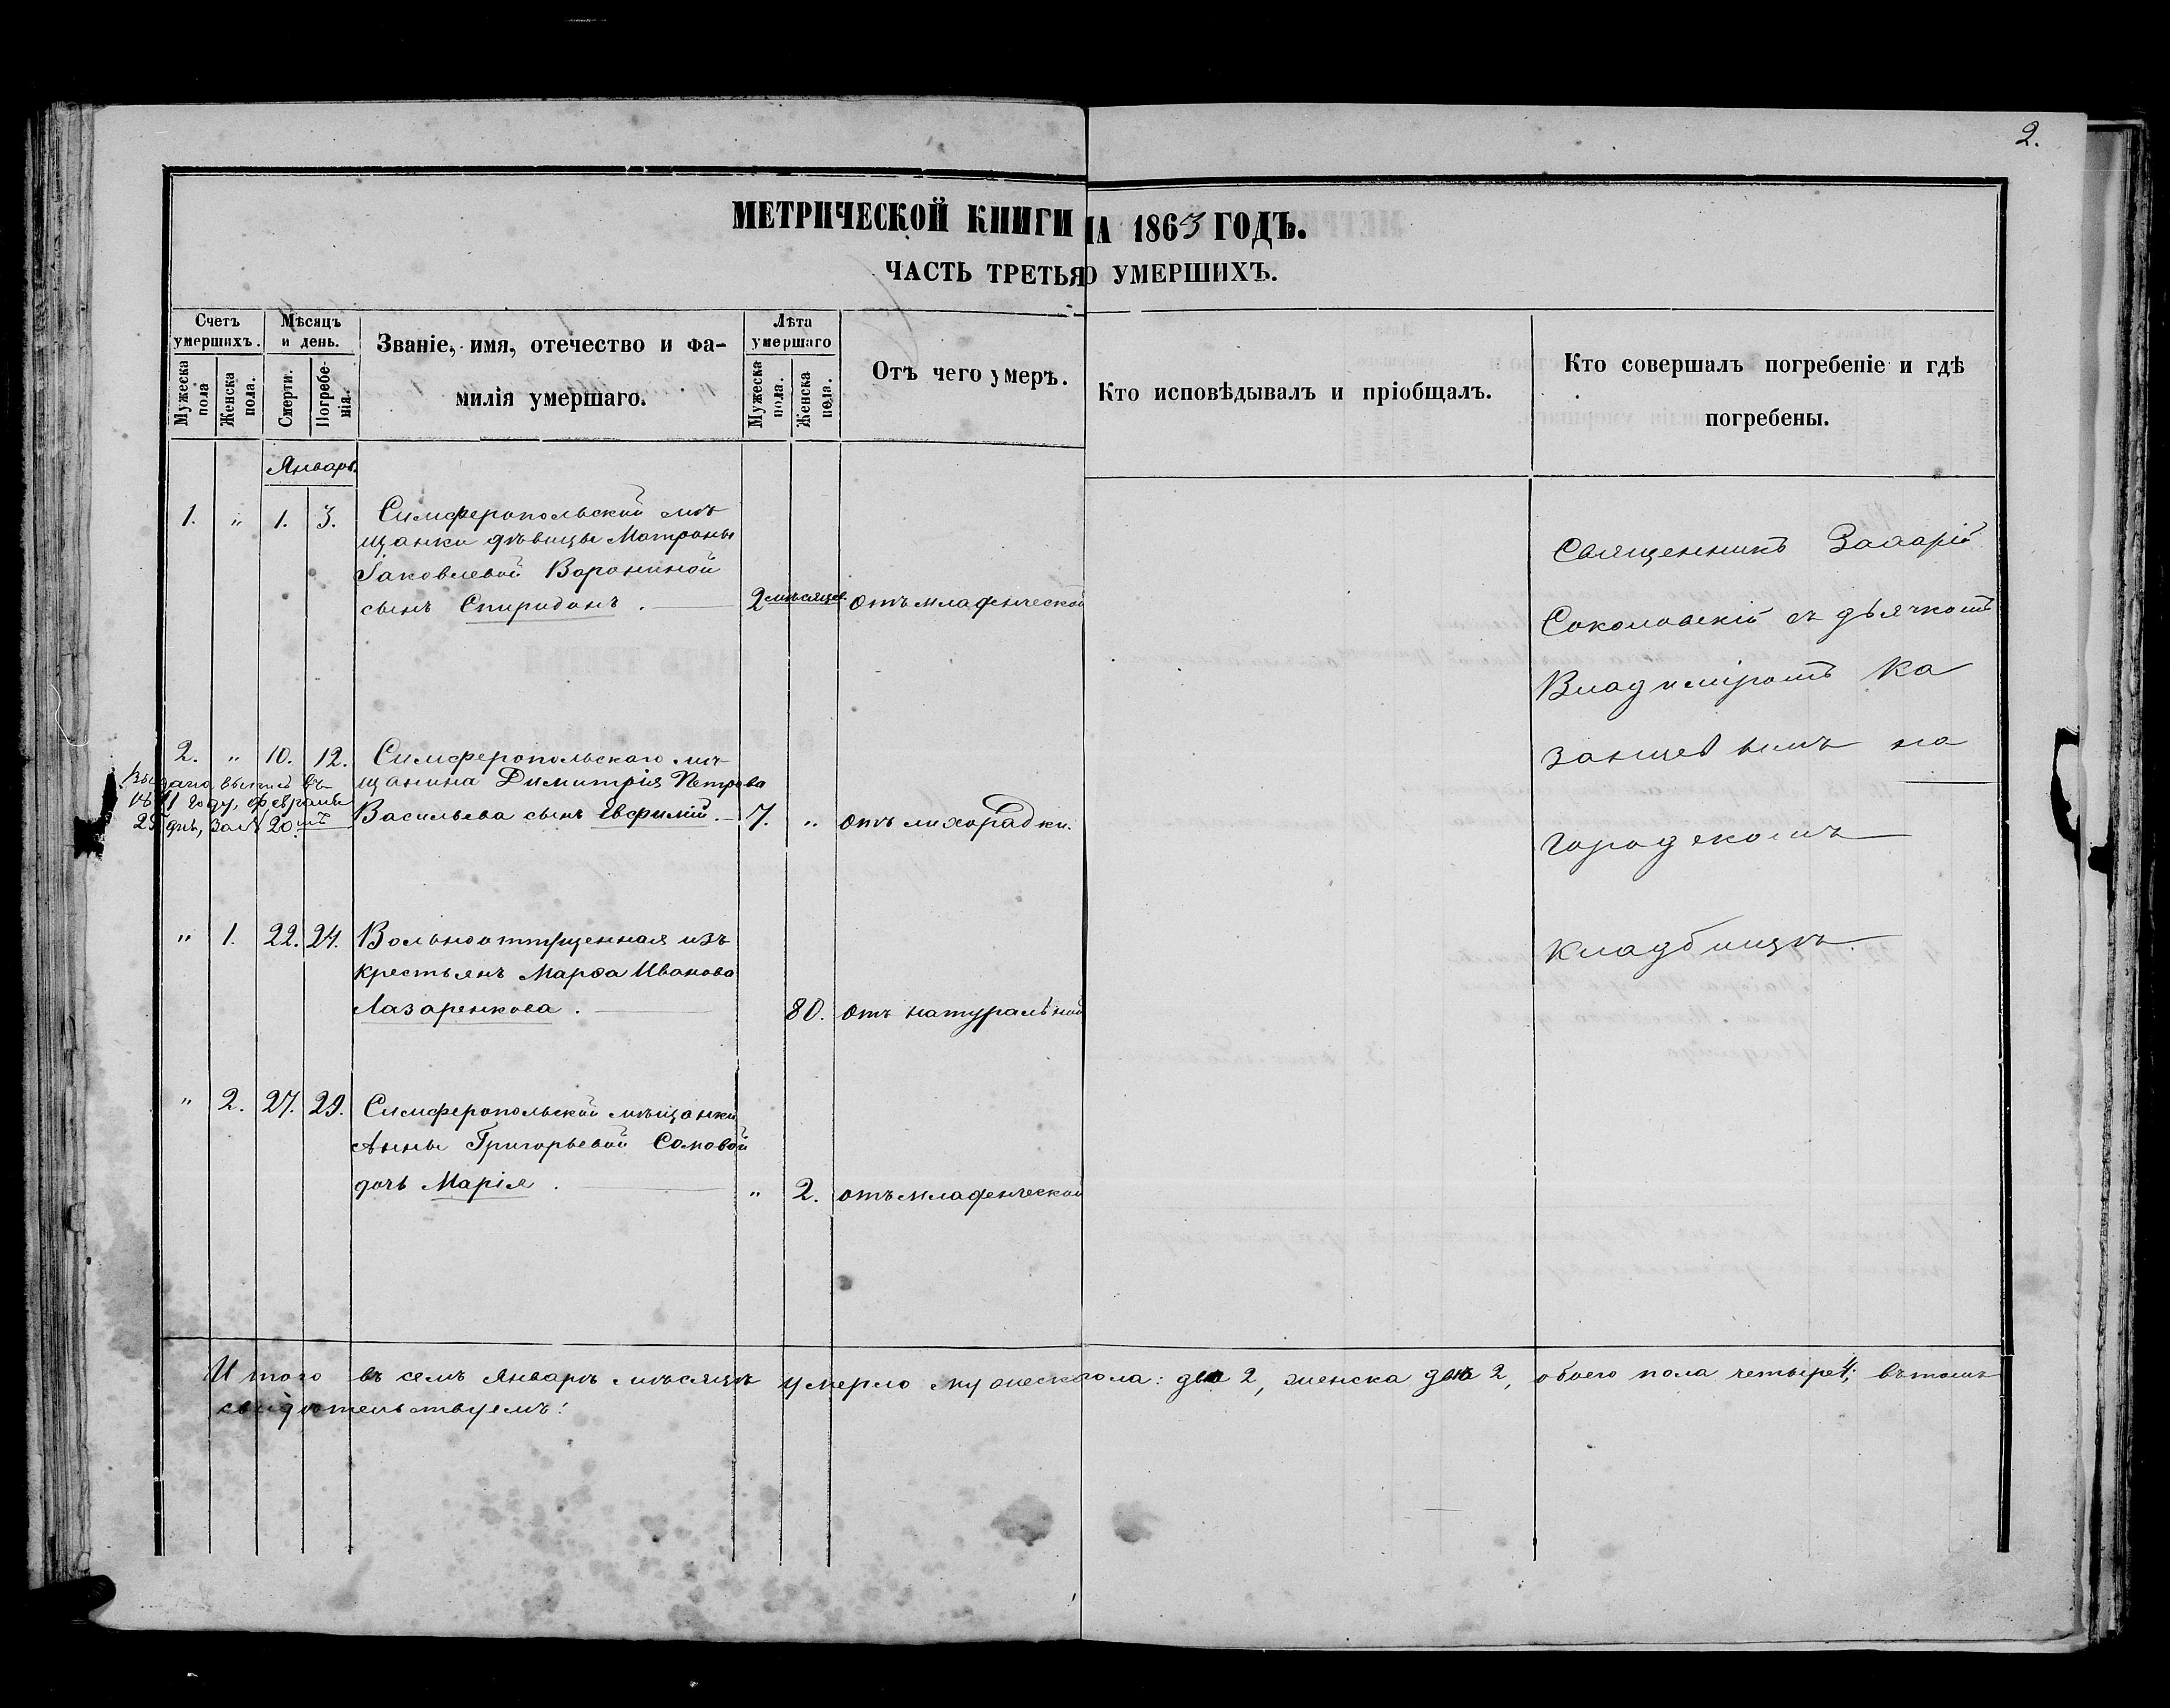 2.
МЕТРИЧЕСКОЙ КНИГИ НА 1863 ГОДЪ.
ЧАСТЬ ТРЕТЬЯ О УМЕРШИХЪ.
Счетъ умершихъ.
Мужеска пола
Женска пола.
Мѣсяцъ и день.
Смерти.
Погребенія.
Званіе, имя, отечество и фа-
милія умершаго.
Лѣта умершаго
Мужеска пола.
Женска пола.
Отъ чего умеръ.
Кто исповѣдывалъ и пріобщалъ.
Кто совершалъ погребеніе и гдѣ
погребены.
Январь.
1. " 1. 3. Симферопольский мѣ
щанки дѣвицы Матроны
Іаковлевой Ворониной
сынъ Спиридонъ. 2 мѣсяцев. отъ младенческой
2. " 10. 12. Симферопольскаго мѣ-
щанина Димитрія Петрова
Васильева сынъ Евфимій. 7. " отъ лихорадки.
Выдана выпись въ
1871 году, февраля
29 дня, за № 20.мъ
" 1. 22. 24. Вольноотпущенная изъ
крестьянъ Марфа Иванова
Лазаренкова. 80. отъ натуральной
" 2. 27. 29. Симферопольской мѣщанки
Анны Григорьевой Сомовой
дочь Марія. " 2. отъ младенческой
Священникъ Захарій
Соколовскій съ дьячкомъ
Владиміромъ Ка
занцевымъ на
городскомъ
кладбищѣ.
Итого въ семъ Январѣ мѣсяцѣ умерло мужеска пола: два 2, женска двѣ 2, обоего пола четыре 4; въ томъ
свидѣтельствуемъ: